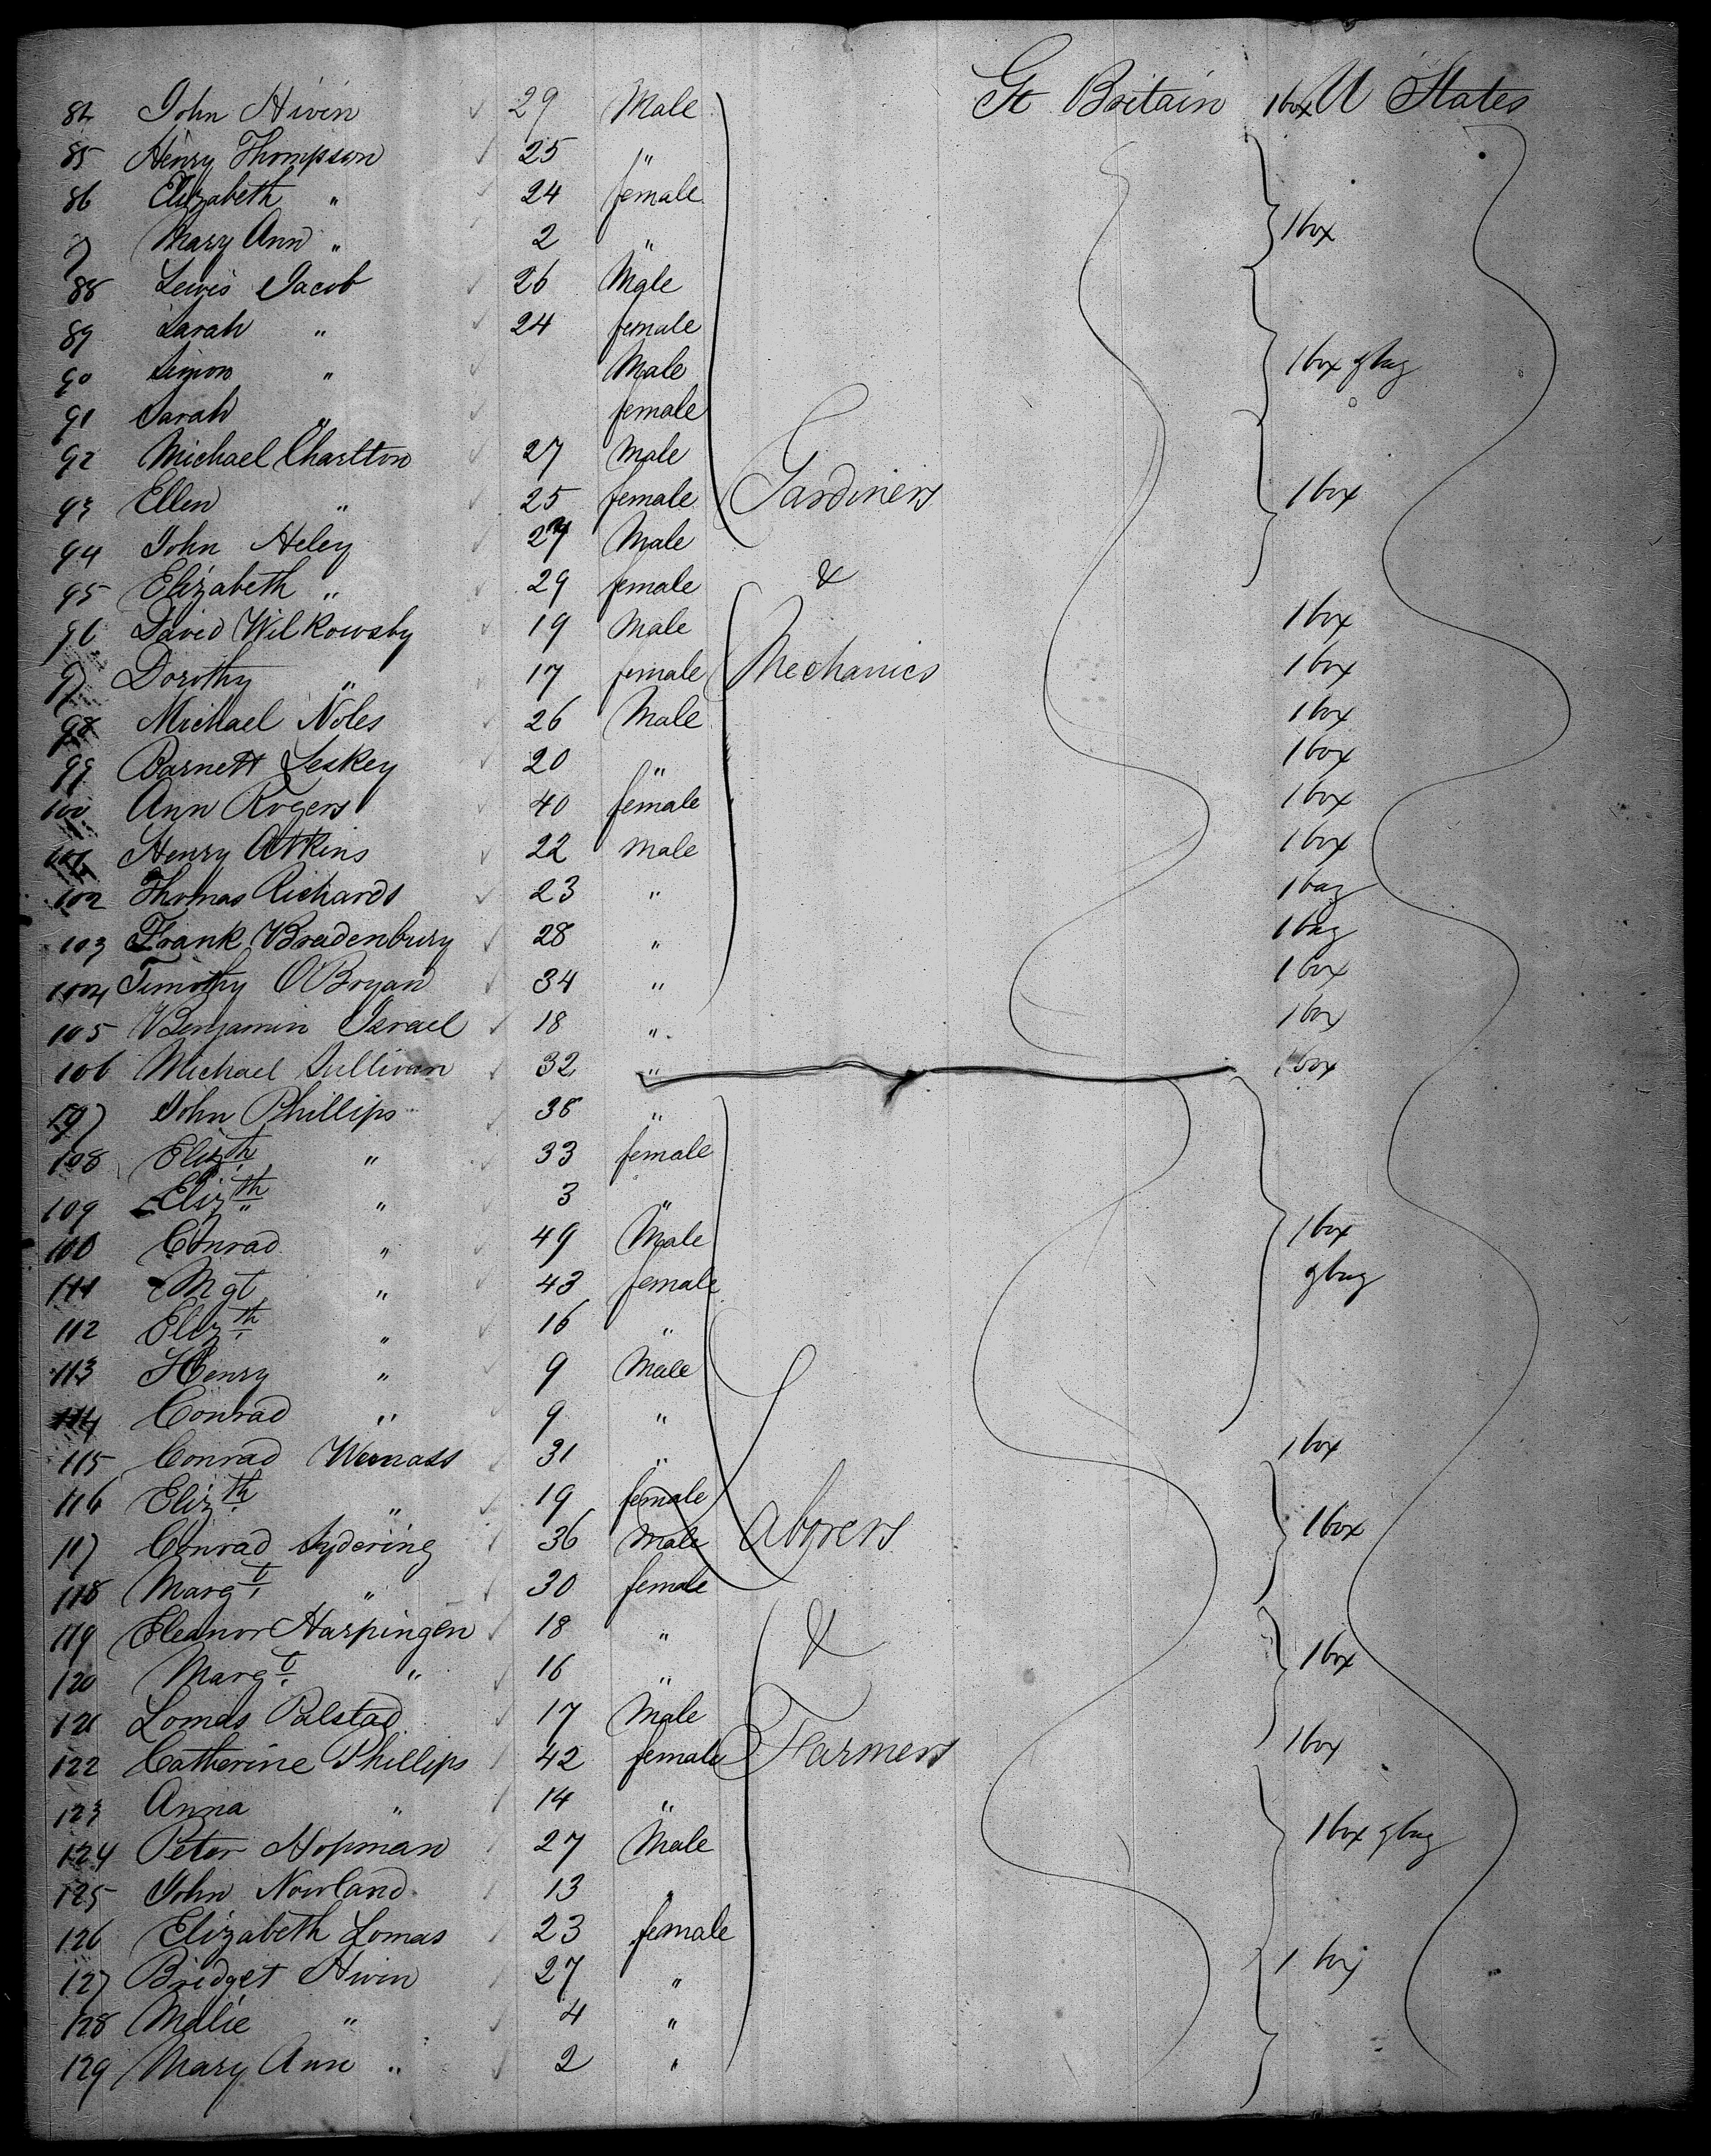 84 John Hivin 29 Male Gt Britain 1 box U States
85 Henry Thompson 25 "
86 Elizabeth " 24 female
7 Mary Ann " 2 " 1 box
88 Lewis Jacob 26 Male
89 Sarah " 24 female
90 Simon " Male 1 box & bag
91 Sarah " female
92 Michael Charlton 27 Male
93 Ellen " 25 female Gardiners 1 box
94 John Heley 27 Male
95 Elizabeth " 29 female &
96 David Wilkowsby 19 Male 1 box
97 Dorothy " 17 female Mechanics 1 box
98 Michael Noles 26 Male 1 box
99 Barnett Leskey 20 " 1 box
100 Ann Rogers 40 female 1 box
101 Henry Atkins 22 male 1 box
102 Thomas Richards 23 " 1 bag
103 Frank Bradenbury 28 " 1 bag
104 Timothy O'Bryan 34 " 1 box
105 Benjamin Israel 18 " 1 box
106 Michael Sullivan 32 " 1 box
107 John Phillips 38 "
108 Elizth " 33 female
109 Elizth " 3 "
100 Conrad " 49 Male 1 box
111 Mgt " 43 female & bag
112 Elizth " 16 "
113 Henry " 9 Male
114 Conrad " 9 "
115 Conrad 31 " 1 box
116 Elizth " 19 female
117 Conrad Sydering 36 Male Laborers 1 box
118 Margt " 30 female
119 Eleanor Harpingen 18 " &
120 Margt " 16 " 1 box
121 Lomas Palstad 17 Male
122 Catherine Phillips 42 female Farmers 1 box
123 Anna " 14 "
124 Peter Hopman 27 Male 1 box & bag
125 John Nowland 13 "
126 Elizabeth Lomas 23 female
127 Bridget Hivin 27 " 1 box
128 Malie " 4 "
129 Mary Ann " 2 "